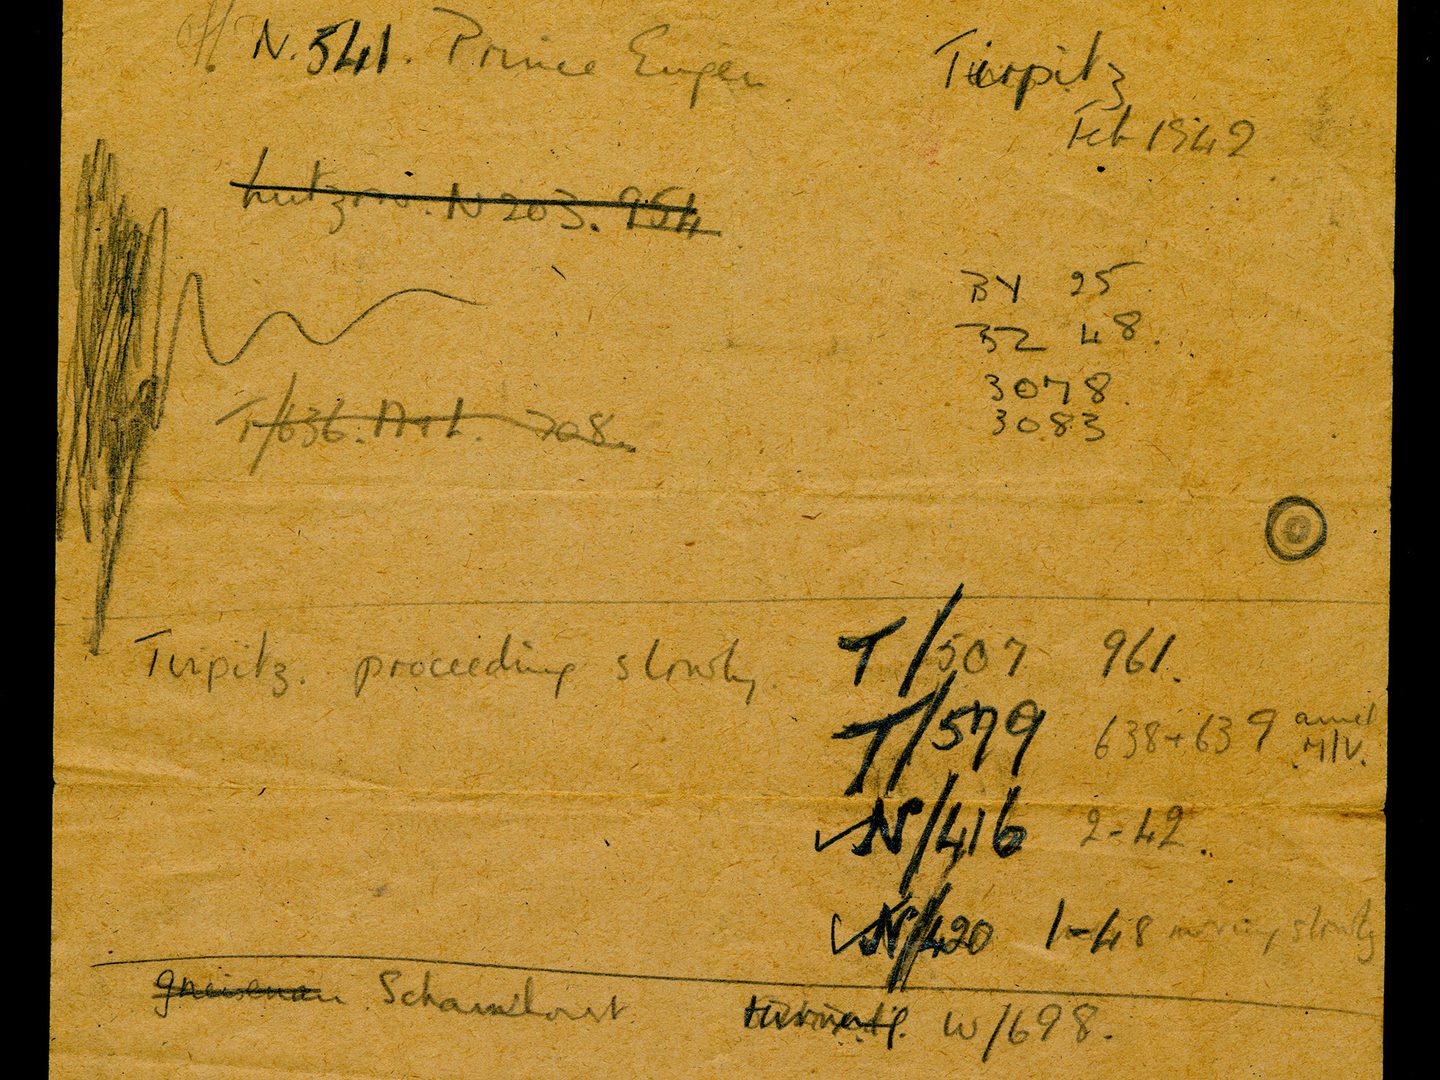 N.541. Prince Eugen
Tirpitz
Feb 1942
Lutzow. N 203. 954
BY 25
BZ 48.
3078.
3083
T/636. 708.
Tirpitz. proceeding slowly.
T/507 961.
T/579 638+639 M/V.
N/416 2-42.
N/420 1-48 moving slowly
Gneisenau Scharnhorst W/698.